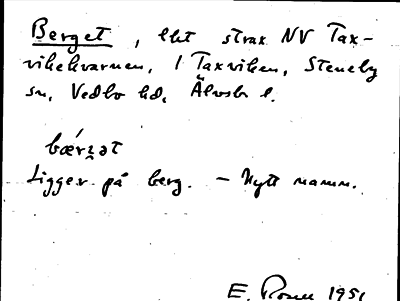 Berget, lht strax NV Tax-
vikekvarnen, 1 Taxviken, Steneby
sn, Vedbo hd, Älvsb l.
bǽrʒət
Ligger på berg. — Nytt namn.
E. Rosell 1951